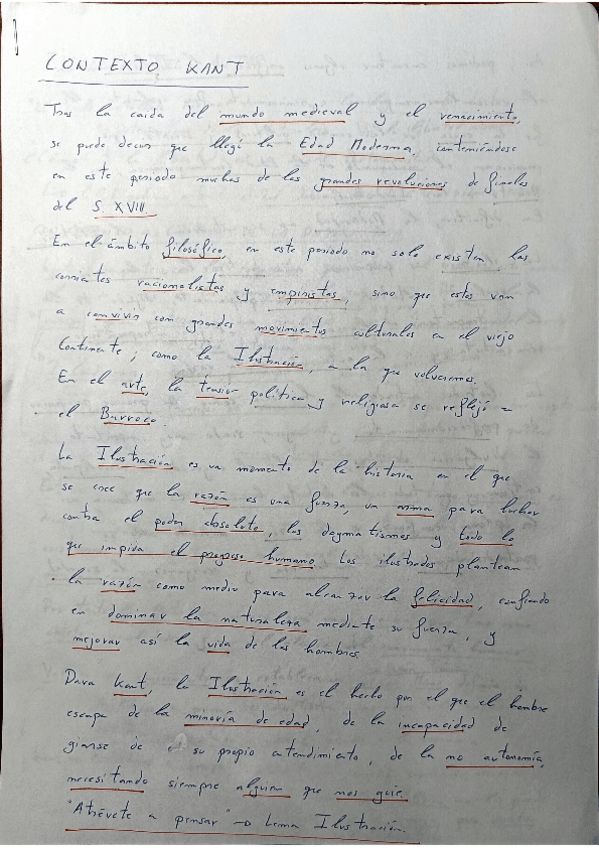 CONTEXTO KANT
Tras la caída del mundo medieval y el renacimiento,
se puede decir que llegó la Edad Moderna, conteniéndose
en este periodo muchas de las grandes revoluciones de finales
del S. XVIII
En el ámbito filosófico, en este periodo no solo existen las
corrientes racionalistas y empiristas, sino que estos van
a convivir con grandes movimientos culturales en el viejo
Continente, como la Ilustración, a la que volveremos.
En el arte, la tensión política y religiosa se reflejó en
el Barroco.
La Ilustración es un momento de la historia en el que
se cree que la razón es una fuerza, un arma para luchar
contra el poder absoluto, los dogmatismos y todo lo
que impida el progreso humano. Los ilustrados plantean
la razón como medio para alcanzar la felicidad, confiando
en dominar la naturaleza mediante su fuerza, y
mejorar así la vida de los hombres.
Para Kant, la Ilustración es el hecho por el que el hombre
escapa de la minoría de edad, de la incapacidad de
guiarse de su propio entendimiento, de la no autonomía,
necesitando siempre alguien que nos guíe.
"Atrévete a pensar" → Lema Ilustración.